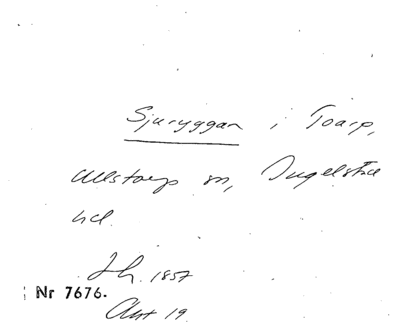 Sjuryggan i Toarp,
Allstorp sn, Ingelstad
hd.
Lh. 1857
Nr 7676.
Akt 19